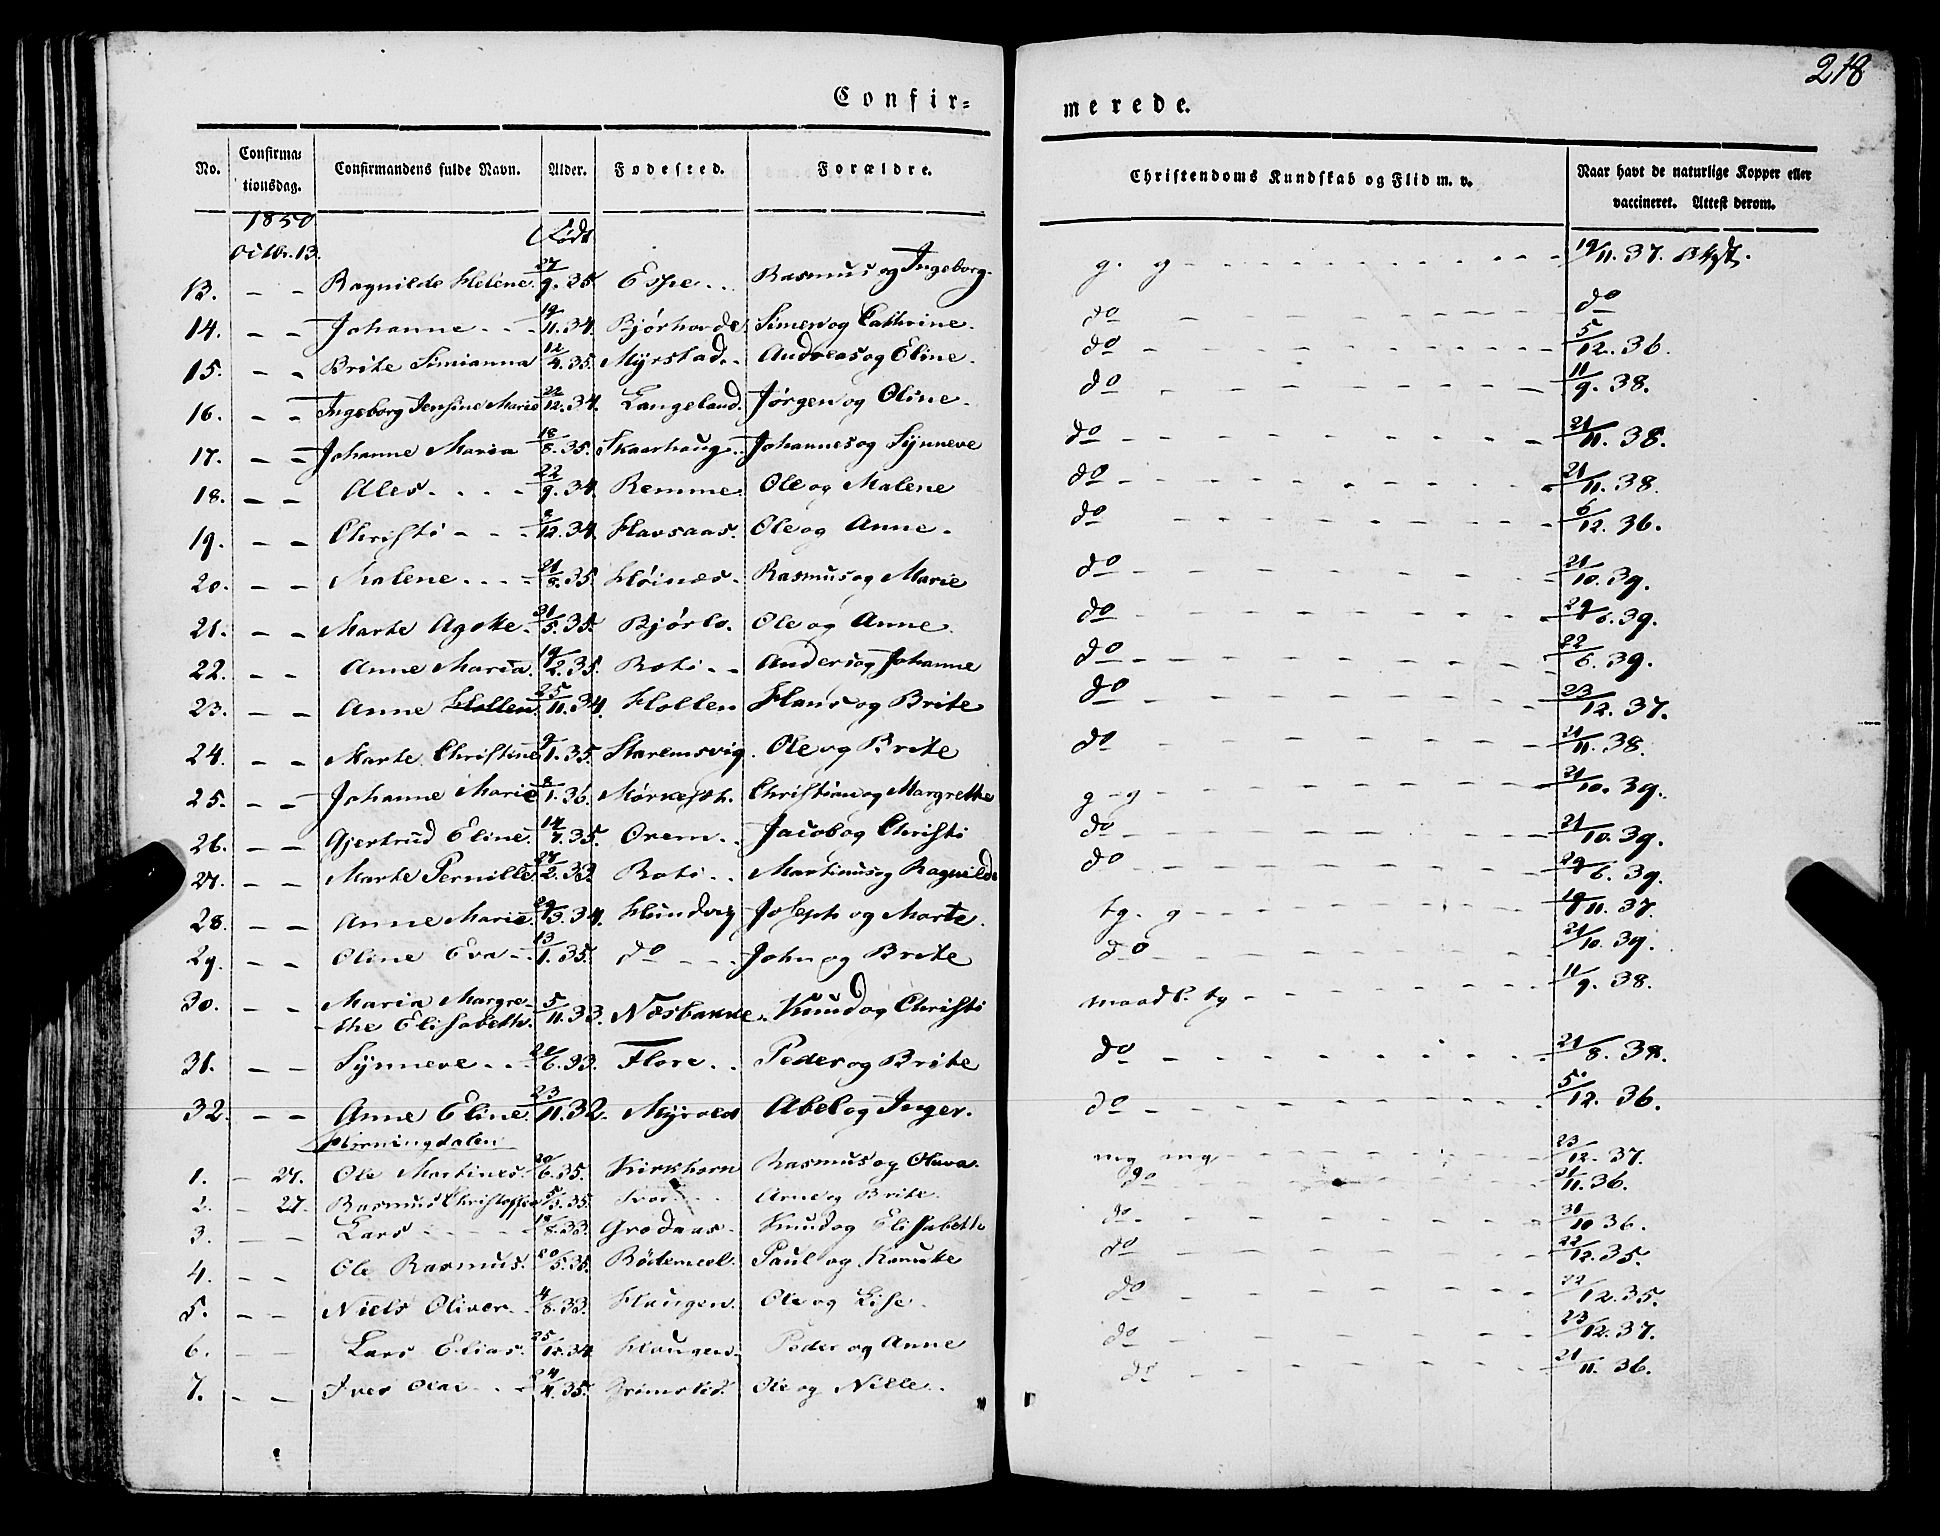 218
Confir-
merede.
No. Confirma-tionsdag. Confirmandens fulde Navn. Alder. Fødested. Forældre. Christendoms Kundskab og Flid m. v. Naar havt de naturlige Kopper eller vaccineret. Attest derom.
1850 Født
Octbr. 13.
13. - - Ragnilde Helene 27/9. 35. Espe Rasmus og Ingeborg. g. g 19/11. 37.
14. - - Johanne 19/11. 34. Bjørhovde Simen og Cathrine. do do
15. - - Brite Simianna 12/4. 35. Myrstad Andreas og Eline. do 5/12. 36.
16. - - Ingeborg Jensine Marie 22/12. 34. Langeland. Jørgen og Oline. do 11/9. 38.
17. - - Johanne Maria 18/8. 35. Skaarhaug Johannes og Synneve do 21/11. 38.
18. - - Ales 22/9. 34. Remme Ole og Malene do 21/11. 38.
19. - - Christi 8/12. 34. Havsaas. Ole og Anne. do 6/12. 36.
20. - - Malene 21/8. 35. Høines. Rasmus og Marie do 21/10. 39.
21. - - Marte Agote. 31/5. 35. Bjørlo. Ole og Anne. do 29/6. 39.
22. - - Anne Maria. 19/2. 35. Roti Anders og Johanne do 22/6. 39.
23. - - Anne Hollen 25/11. 34. Hollen Hans og Brite do 23/12. 37.
24. - - Marte Christine 9/1. 35. Staremsvig. Ole og Brite do 21/11. 38.
25. - - Johanne Marie 8/1. 36. Christian og Margrethe g - g 21/10. 39.
26. - - Gjertrud Eline. 14/7. 35. Orem Jacob og Christi do 21/10. 39.
27. - - Marte Pernille 27/2. 33. Roti Martinus og Ragnilde do 29/6. 39.
28. - - Anne Marie 29/3. 34. Hundvig Joseph og Marte. tg. g 19/11. 37.
29. - - Oline Eva 13/1. 35. do John og Brite do 21/10. 39.
30. - - Maria Margre-
the Elisabeth. 5/11. 33. Næsbakke. Knud og Christi maadl. tg 11/9. 38.
31. - - Synneve 21/6. 33. Flore Peder og Brite do 21/8. 38.
32. - - Anne Eline 23/11. 32. Myrold Abel og Inger. do 5/12. 36.
Horningdalen
1. - 27. Ole Martines 20/6. 35. Kirkhorn Rasmus og Oluva. mg mg 23/12. 37.
2. - 27. Rasmus Christoffer 5/3. 35. Arne og Brite do 21/11. 36.
3. - - Lars 18/8. 33. Grodaas Knud og Elisabeth do 31/10 36.
4. - - Ole Rasmus. 20/5. 35. Paul og do 22/12. 35.
5. - - Niels Oliver 4/8. 33. Haugen. Ole og Lise do 22/12. 35.
6. - - Lars Elias. 25/12. 34 Haugen. Peder og Anne do 23/12. 37.
7. - - Iver Olai 24/4. 35. Grimstad. Ole og Nille do 21/11. 36.